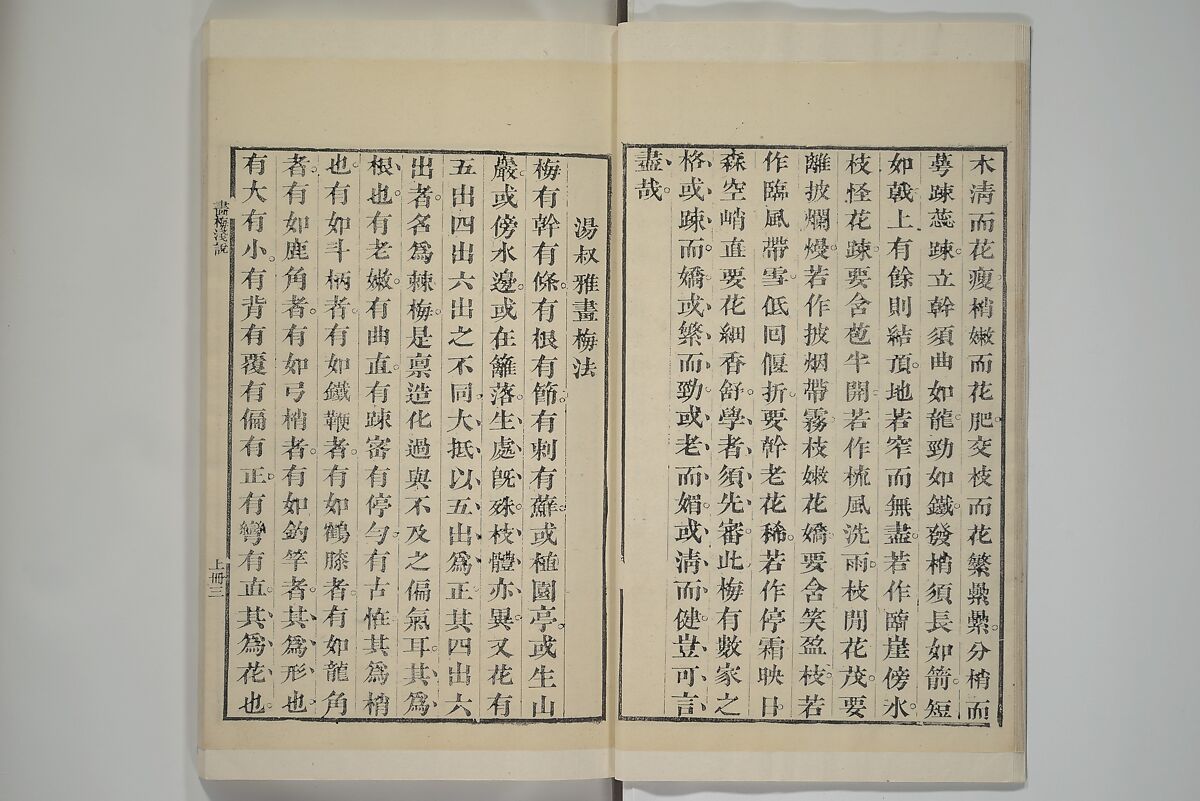 木清而花瘦。梢嫩而花肥。交枝而花繁纍纍。分梢而
萼踈蕊踈。立幹須曲如龍。勁如鐵。發梢須長如箭。短
如戟。上有餘則結頂。地若窄而無盡。若作臨崖傍水。
枝怪花踈。要含苞半開。若作梳風洗雨。枝閒花茂。要
離披爛熳。若作披烟帶霧。枝嫩花嬌。要含笑盈枝。若
作臨風帶雪。低回偃折。要幹老花稀。若作停霜映日。
森空峭直。要花細香舒。學者須先審此。梅有數家之
格。或踈而嬌。或繁而勁。或老而媚。或淸而健。豈可言
盡哉。
湯叔雅畫梅法
梅有幹有條。有根有節。有刺有蘚。或植園亭。或生山
巖。或傍水邊。或在籬落。生處旣殊。枝體亦異。又花有
五出四出六出之不同。大抵以五出爲正。其四出六
出者。名爲棘梅。是禀造化過與不及之偏氣耳。其爲
根也。有老嫩。有曲直。有踈審。有停勻。有古怪。其爲梢
也。有如斗柄者。有如鐵鞭者。有如鶴膝者。有如龍角
者。有如鹿角者。有如弓梢者。有如釣竿者。其爲形也。
有大有小。有背有覆。有偏有正。有彎有直。其爲花也。
畫梅淺說
上冊三